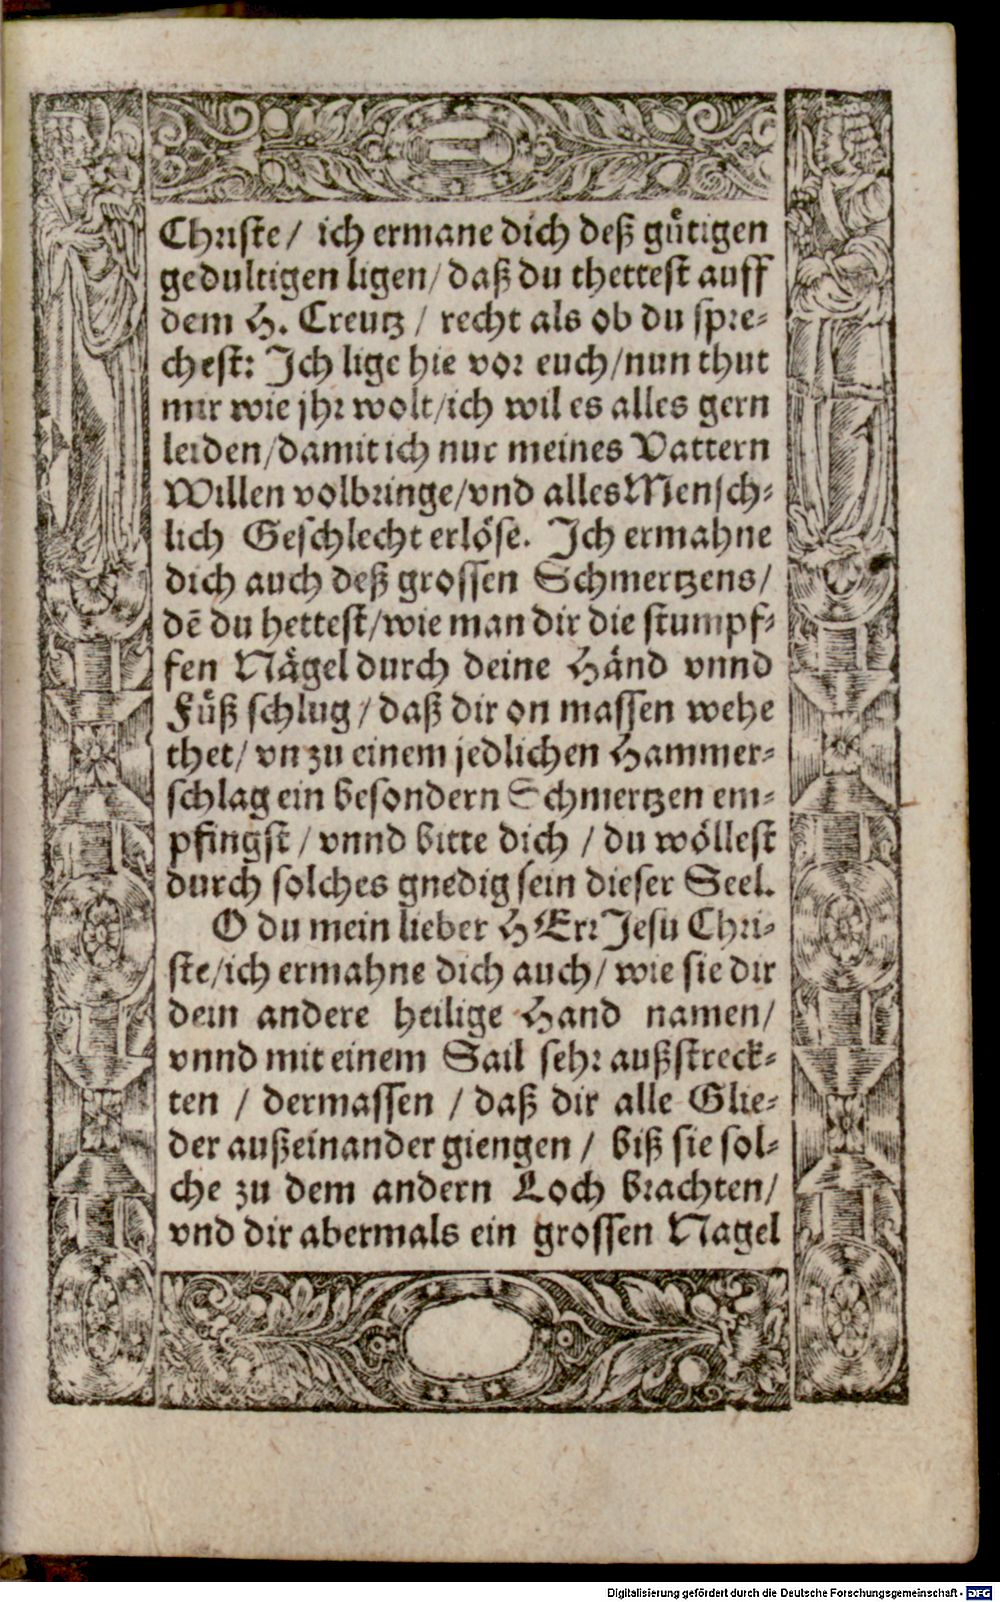 Christe/ ich ermane dich deß gütigen
gedultigen ligen/ daß du thettest auff
dem H. Creutz / recht als ob du spre-
chest: Ich lige hie vor euch/nun thut
mir wie jhr wolt/ich wil es alles gern
leiden/damit ich nur meines Vattern
Willen volbringe/vnd alles Mensch-
lich Geschlecht erlöse. Ich ermahne
dich auch deß grossen Schmertzens/
dē du hettest/wie man dir die stumpf-
fen Nägel durch deine Händ vnnd
Füß schlug/ daß dir on massen wehe
thet/ vn zu einem jedlichen Hammer-
schlag ein besondern Schmertzen em-
pfingst / vnnd bitte dich / du wöllest
durch solches gnedig sein dieser Seel.
O du mein lieber HErr Jesu Chri-
ste/ich ermahne dich auch/ wie sie dir
dein andere heilige Hand namen/
vnnd mit einem Sail sehr außstreck-
ten / dermassen / daß dir alle Glie-
der außeinander giengen / biß sie sol-
che zu dem andern Loch brachten/
vnd dir abermals ein grossen Nagel
Digitalisierung gefördert durch die Deutsche Forschungsgemeinschaft - DFG